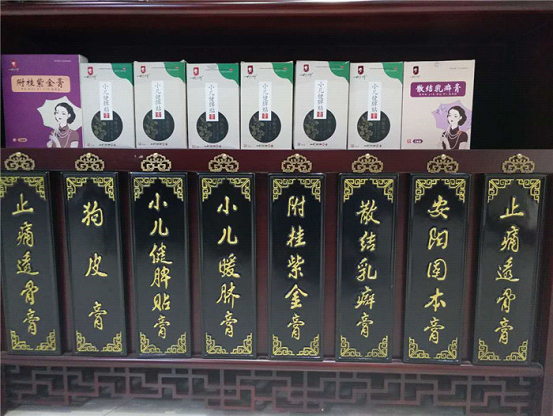 附桂紫金膏
小儿健脾贴
小儿健脾贴
小儿健脾贴
小儿健脾贴
小儿健脾贴
小儿健脾贴
散结乳癖膏
止痛透骨膏
狗皮膏
小儿健脾贴膏
小儿暖脐膏
附桂紫金膏
散结乳癖膏
安阳固本膏
止痛透骨膏